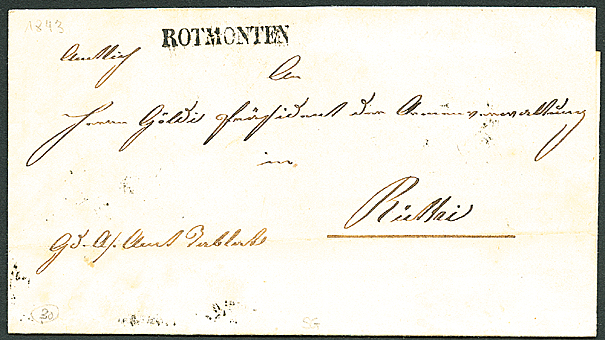 1843
ROTMONTEN
Amtlich
An
Herrn Göldi Präsident der Armenverwaltung
in
Rüthi
Gd. A/. Amt Tablat
30
SG